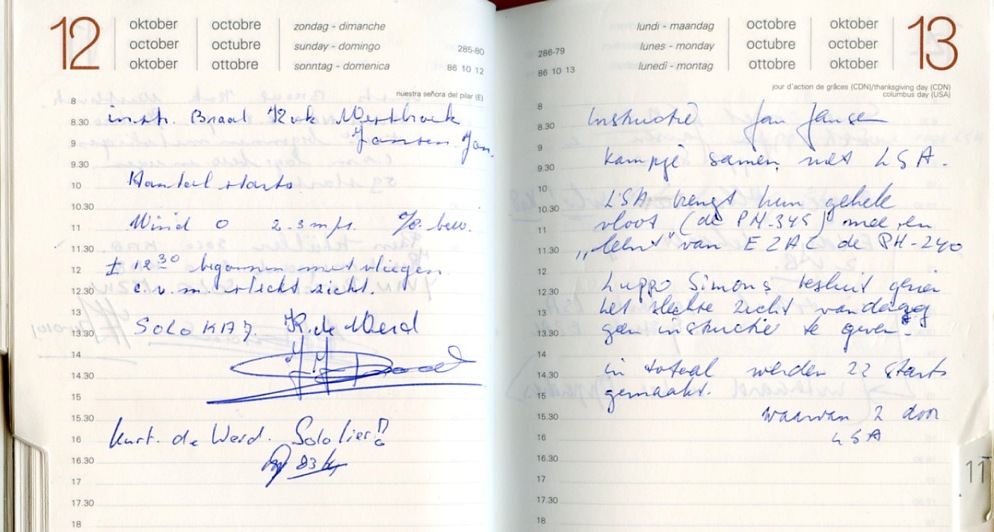 12
oktober octobre zondag - dimanche
october octubre sunday - domingo
oktober ottobre sonntag - domenica
285-80
86 10 12
nuestra señora del pilar (E)
8
8.30 instr. Braal Kuk Westbroek
9 Jansen. Jan.
9.30
10 Aantal starts
10.30
11 Wind O 2.3 mps. 0/8 bew.
11.30
12 ± 12 30 begonnen met vliegen
12.30 e.v.m. slecht zicht.
13
13.30 Solo KA7. K. de Werd
14
14.30
15
15.30
16 Kurt. de Werd. Solo lier!
16.30
17
17.30
18
lundi - maandag octobre oktober
lunes - monday octubre october
lunedì - montag ottobre oktober
13
286-79
86 10 13
jour d'action de grâces (CDN)/thanksgiving day (CDN)
columbus day (USA)
8
8.30 Instructie Jan Jansen
9
9.30 Kampje samen met LSA.
10
10.30 LSA brengt hun gehele
11 vloot (de PH-345) mee en
11.30 „leent" van EZAC de PH-240
12
12.30 Luppo Simons besluit gezien
13 het slechte zicht vandaag
13.30 geen instructie te geven.
14
14.30 in totaal werden 22 starts
15 gemaakt.
15.30 waarvan 2 door
16 LSA
16.30
17
17.30
18
11